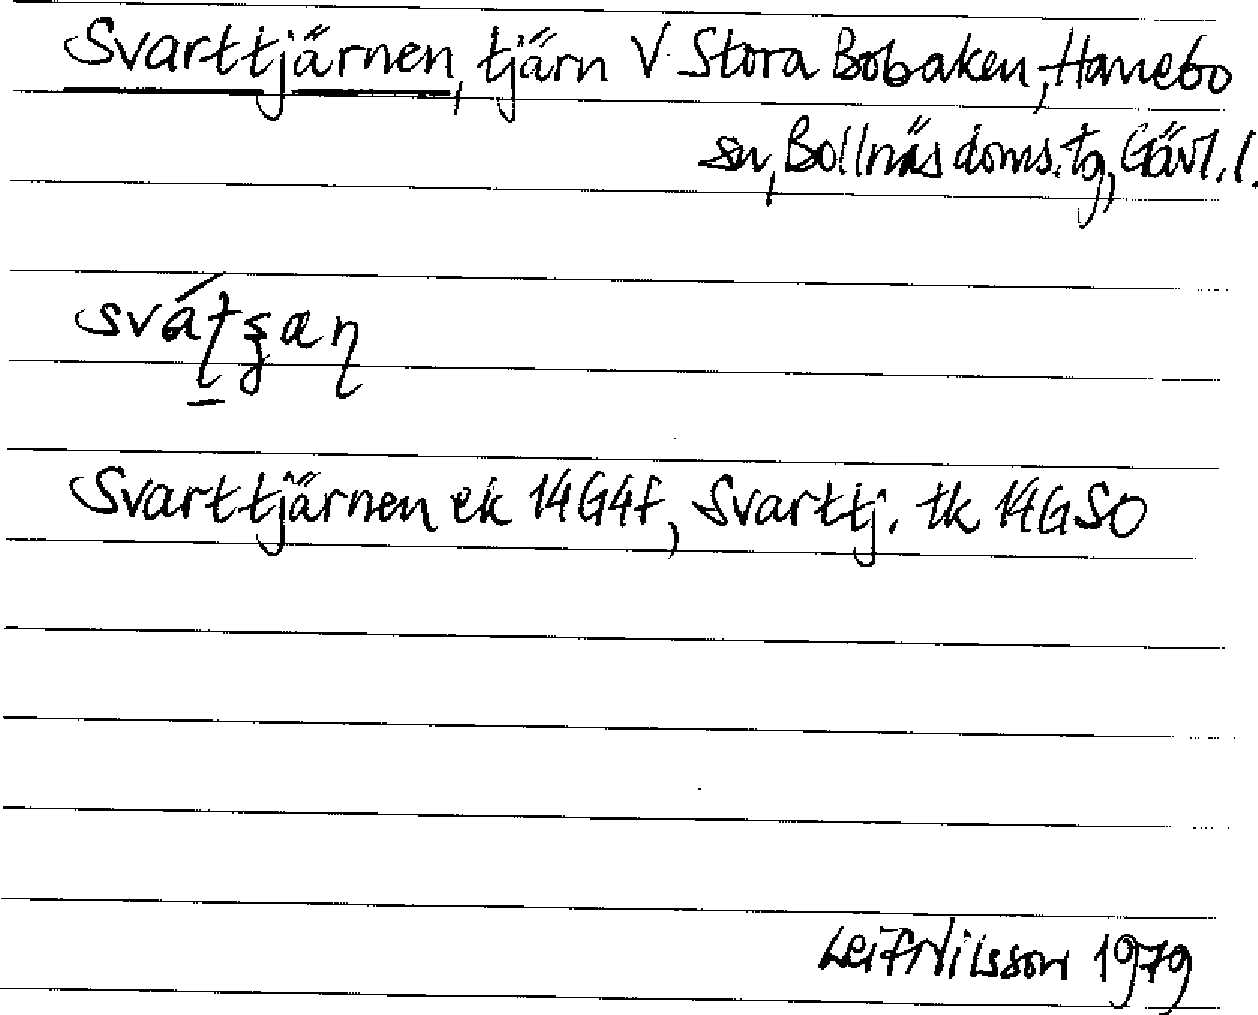 Svarttjärnen, tjärn V Stora Bobaken, Hanebo
sn, Bollnäs doms.tg, Gävl. l.
Svarttjärnen ek 14G4f, Svarttj. tk 14GSO
Leif Nilsson 1979